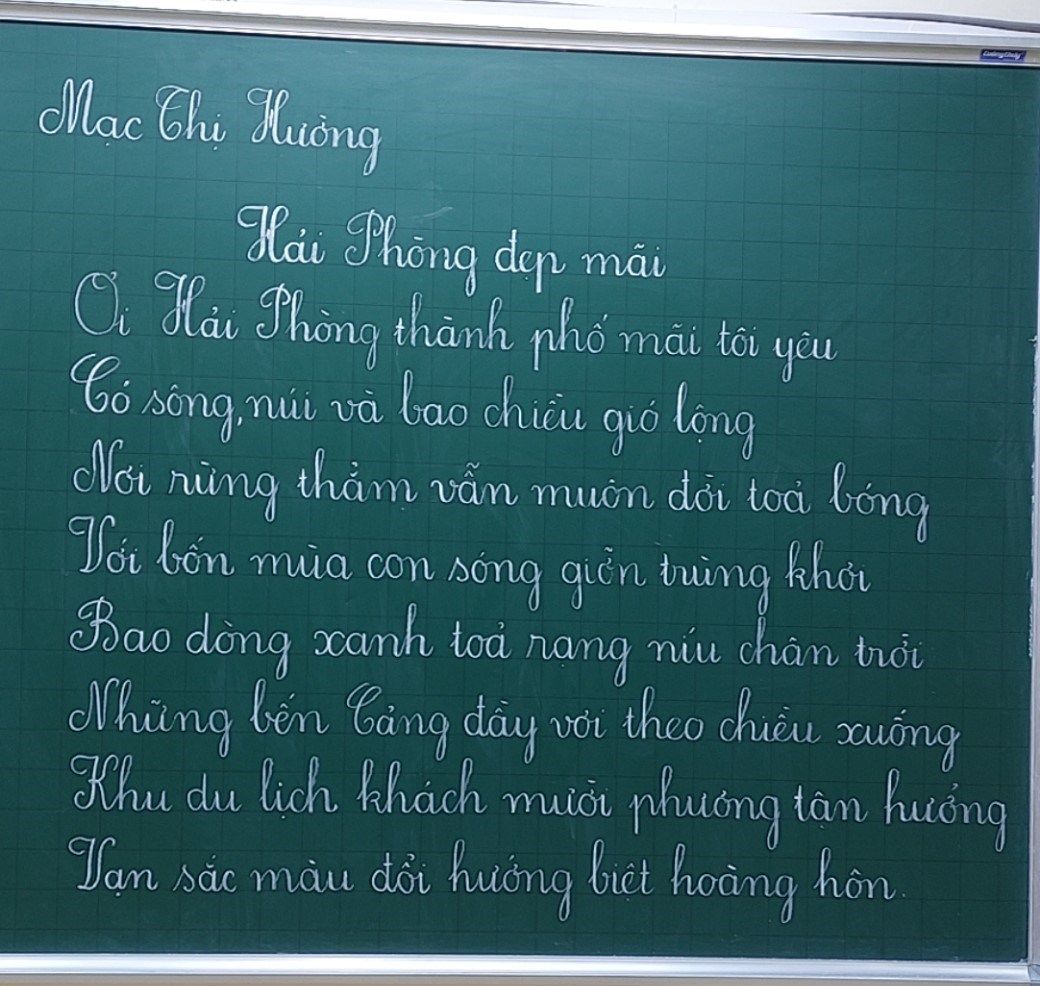 Mạc Thị Hường
Hải Phòng đẹp mãi
Ơi Hải Phòng thành phố mãi tôi yêu
Có sông, núi và bao chiều gió lộng
Nơi rừng thẳm vẫn muôn đời toả bóng
Với bốn mùa con sóng giỡn trùng khơi
Bao dòng xanh toả rạng níu chân trời
Những bến Cảng đầy vơi theo chiều xuống
Khu du lịch khách mười phương tận hưởng
Vạn sắc màu đổi hướng biệt hoàng hôn.